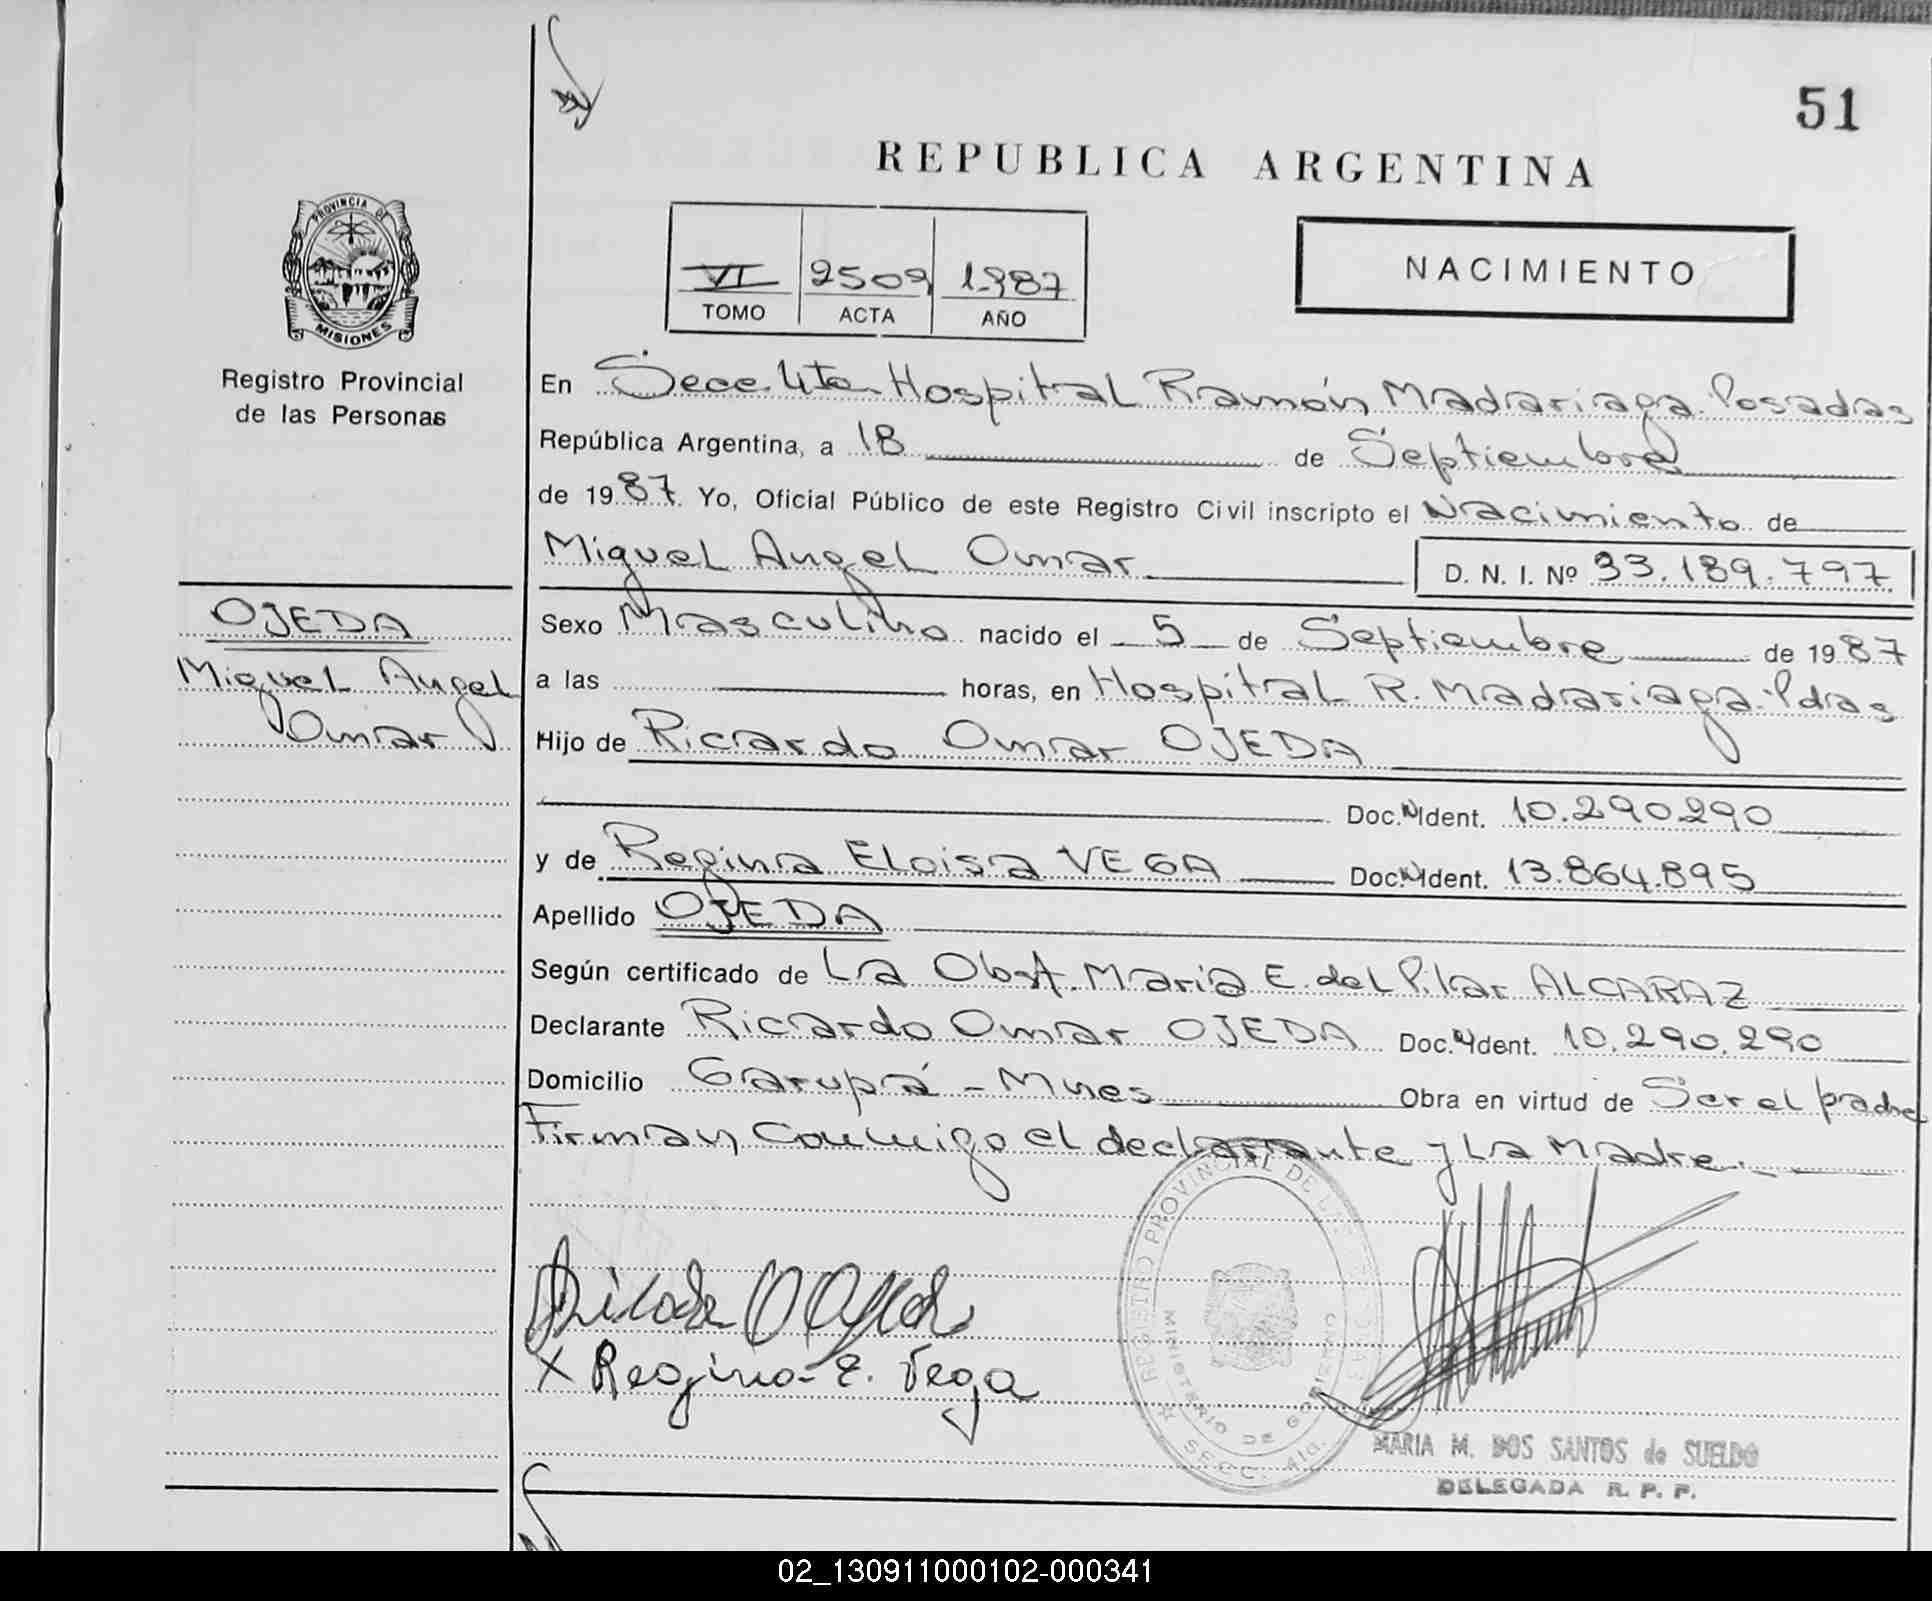 51
REPUBLICA ARGENTINA
PROVINCIA DE
MISIONES
VI 2509 1987
TOMO ACTA AÑO
NACIMIENTO
Registro Provincial
de las Personas
En Secc. 4ta. Hospital Ramón Madariaga. Posadas
República Argentina, a 18 de Septiembre
de 1987. Yo, Oficial Público de este Registro Civil inscripto el Nacimiento de
Miguel Angel Omar D. N. I. Nº 33.189.797
OJEDA
Miguel Angel
Omar
Sexo Masculino nacido el 5 de Septiembre de 1987
a las horas, en Hospital R. Madariaga. Pdas
Hijo de Ricardo Omar OJEDA
Doc. N Ident. 10.290290
y de Regina Eloisa VEGA Doc. N Ident. 13.864.895
Apellido OJEDA
Según certificado de La Obst. Maria E. del Pilar ALCARAZ
Declarante Ricardo Omar OJEDA Doc. Ident. 10.290.290
Domicilio Garupá - Mnes Obra en virtud de Ser el padre
Firman Conmigo el declarante y La Madre.
REGISTRO PROVINCIAL DE LAS PERSONAS
MINISTERIO DE GOBIERNO
SECC. 4ta.
X Regina E. Vega
MARIA M. DOS SANTOS de SUELDO
DELEGADA R. P. P.
02_130911000102-000341